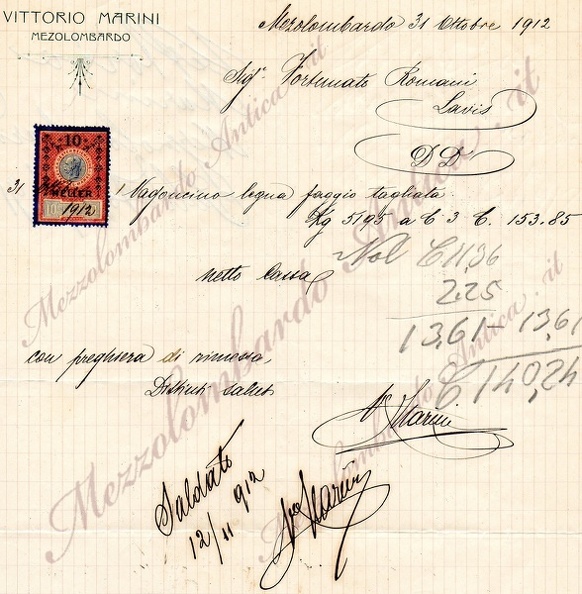 VITTORIO MARINI
MEZOLOMBARDO
Mezolombardo 31 Ottobre 1912
Sigr Fortunato Romani
Lavis
DD
10
HELLER
10
1912
31 1 Vagoncino legna faggio tagliata
Kg 5195 a C 3 C. 153.85
Nol C 11,36
2.25
netto Cassa
13,61 - 13,61
C 140,24
con preghiera di rimessa,
Distinti saluti
V. Marini
Saldato
12/11 912
V. Marini
Mezzolombardo Antica . it
Mezzolombardo Antica . it
Mezzolombardo Antica . it